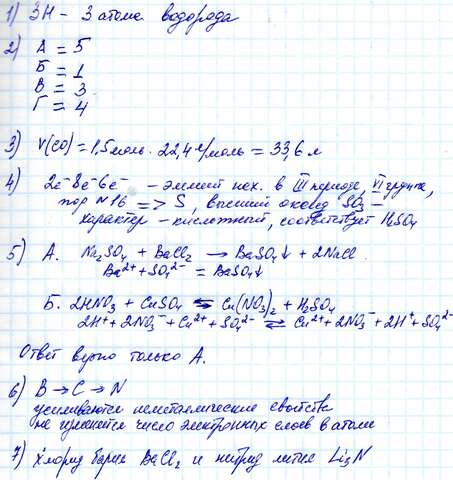 1) 3H - 3 атома водорода
2) А = 5
Б = 1
В = 3
Г = 4
3) V(CO) = 1,5 моль · 22,4 л/моль = 33,6 л
4) 2e⁻8e⁻6e⁻ - элемент нах. в III периоде, VI группа,
пор №16 => S, высший оксид SO₃ -
характер - кислотный, соответствует H₂SO₄
5) А. Na₂SO₄ + BaCl₂ → BaSO₄↓ + 2NaCl
Ba²⁺ + SO₄²⁻ = BaSO₄↓
Б. 2HNO₃ + CuSO₄ ⇆ Cu(NO₃)₂ + H₂SO₄
2H⁺ + 2NO₃⁻ + Cu²⁺ + SO₄²⁻ ⇄ Cu²⁺ + 2NO₃⁻ + 2H⁺ + SO₄²⁻
Ответ верно только А.
6) B → C → N
усиливаются неметаллические свойства
не изменяется число электронных слоев в атоме
7) хлорид бария BaCl₂ и нитрид лития Li₃N